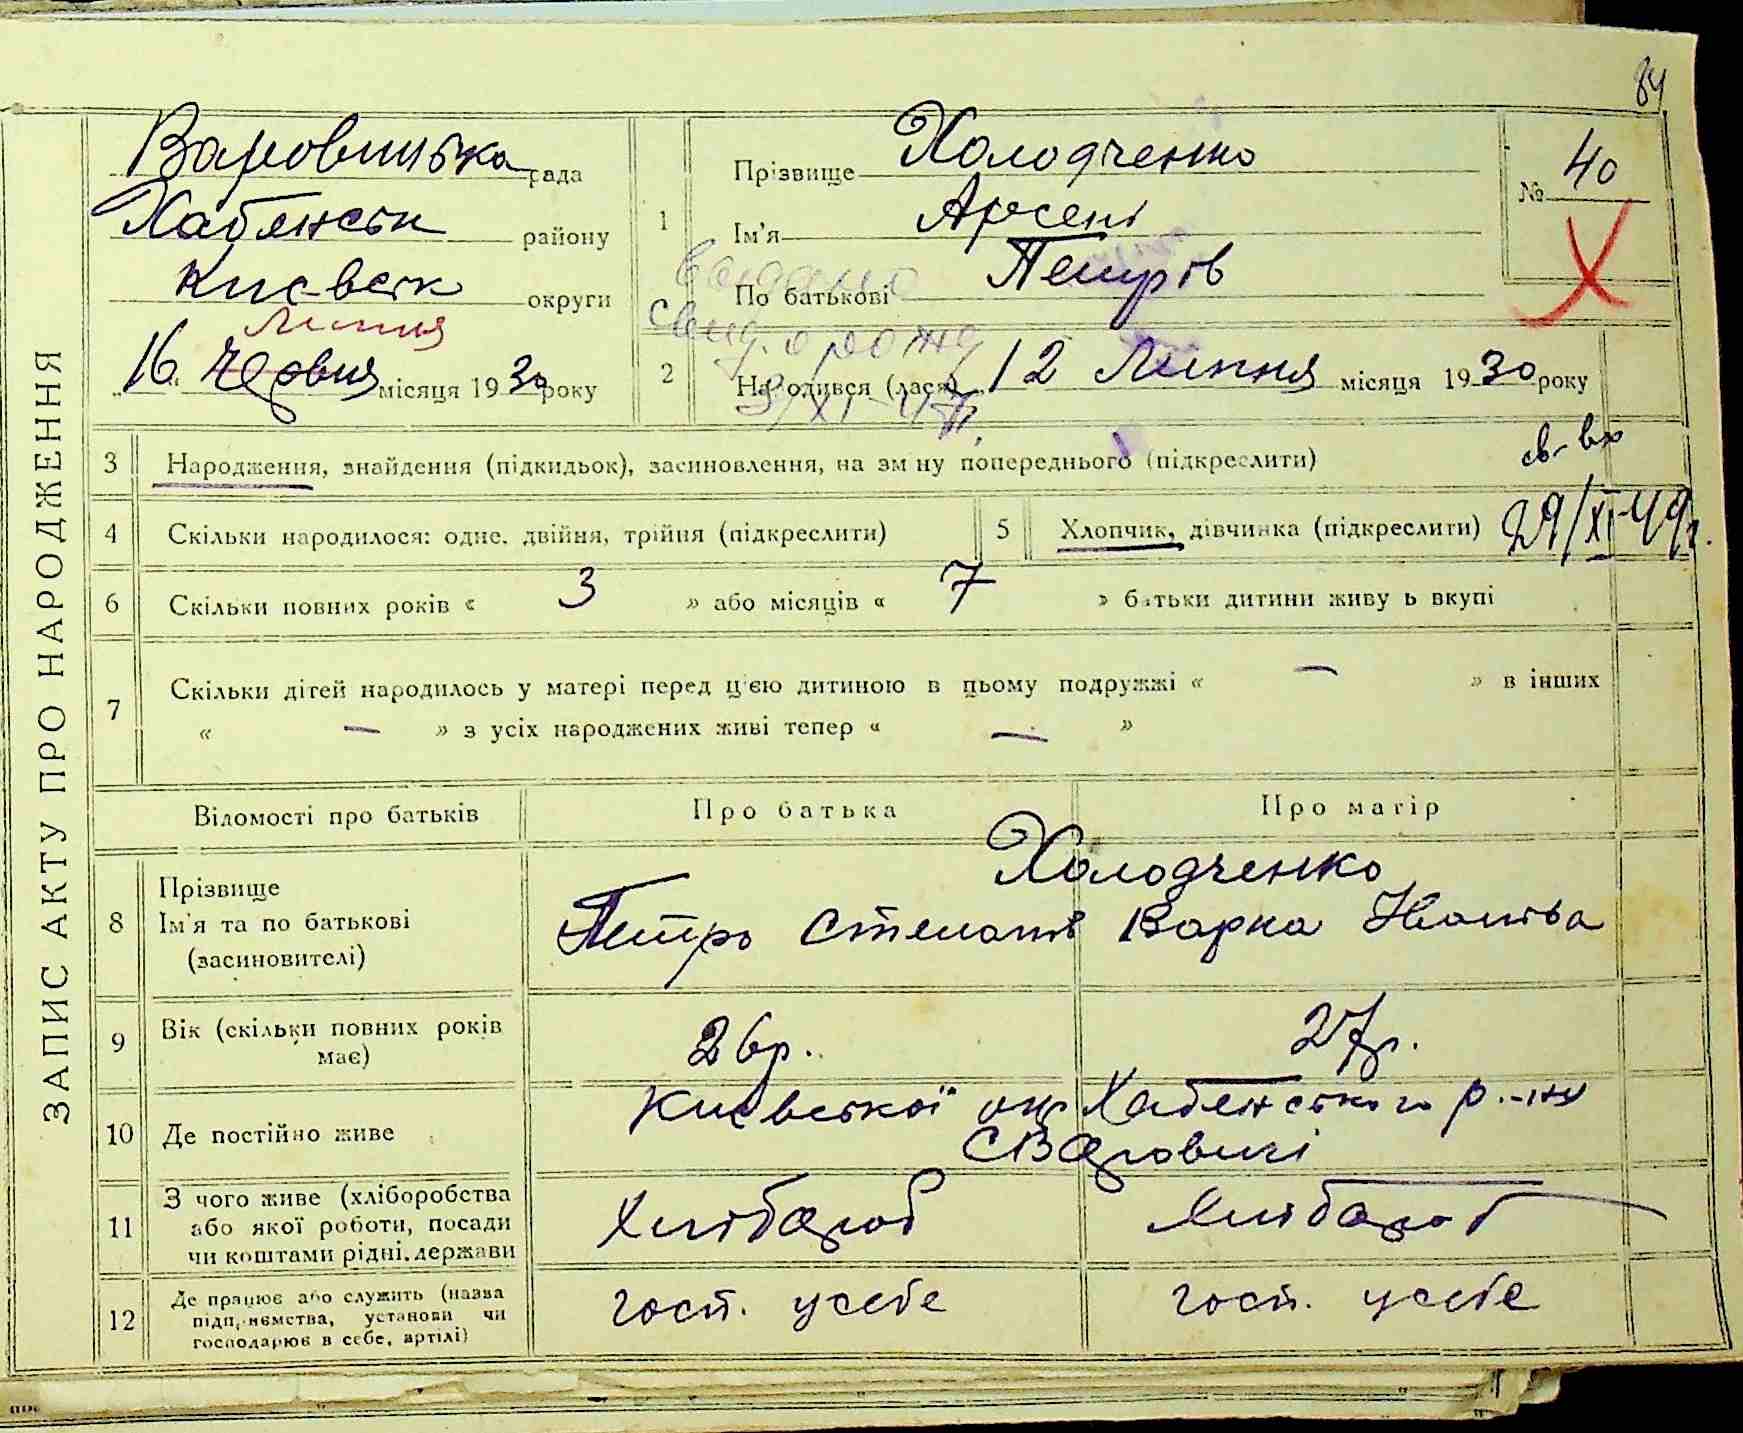 84
ЗАПИС АКТУ ПРО НАРОДЖЕННЯ
Варовицька рада
Хабенськ району
Києвськ округи
Липня
16 червня місяця 1930 року
1 Прізвище Холодченко
Ім'я Арсені
По батькові Петрів
№ 40
видано
свид. о рожд
2 Народився (лася) 12 Липня місяця 1930 року
3 Народження, знайдення (підкидьок), засиновлення, на зм ну попереднього (підкреслити)
29/XI-49г.
4 Скільки народилося: одне, двійня, трійня (підкреслити)
5 Хлопчик, дівчинка (підкреслити)
6 Скільки повних років « 3 » або місяців « 7 » батьки дитини живу ь вкупі
7 Скільки дітей народилось у матері перед ц'єю дитиною в цьому подружжі « — » в інших
« — » з усіх народжених живі тепер « — »
Відомості про батьків Про батька Про матір
8 Прізвище
Ім'я та по батькові
(засиновителі)
Холодченко
Петро Степанів Варка Іванівна
9 Вік (скільки повних років
має)
26р. 27р.
10 Де постійно живе
Києвської окр Хабенського р.-ну
с Варовичі
11 З чого живе (хліборобства
або якої роботи, посади
чи коштами рідні, держави
Хлібороб Хлібороб
12 Де працює або служить (назва
підп,иємства, установи чи
господарює в себе, артілі)
госп. усебе госп. усебе